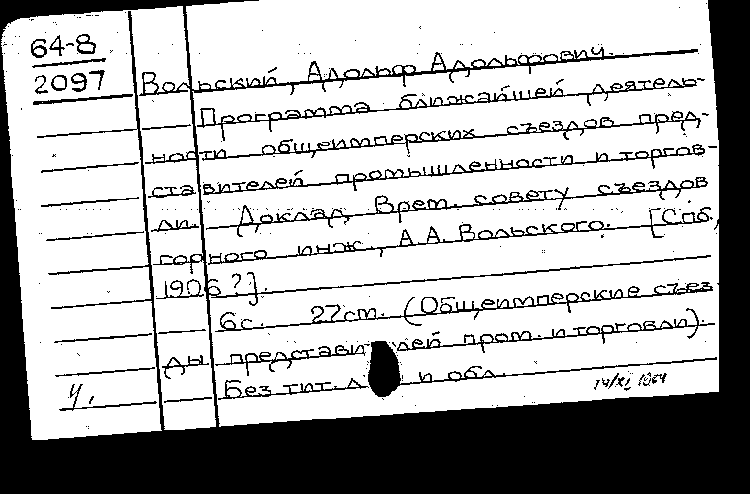 64-8
2097
Вольский, Адольф Адольфович.
Программа ближайшей деятель-
ности общеимперских съездов пред-
ставителей промышленности и торгов-
ли. Доклад Врем. совету съездов
горного инж., А.А. Вольского. [Спб.,
1906?].
6с. 27см. (Общеимперские съез-
ды представителей пром. и торговли).
Без тит. л. и обл.
Ч.
14/XI 1964